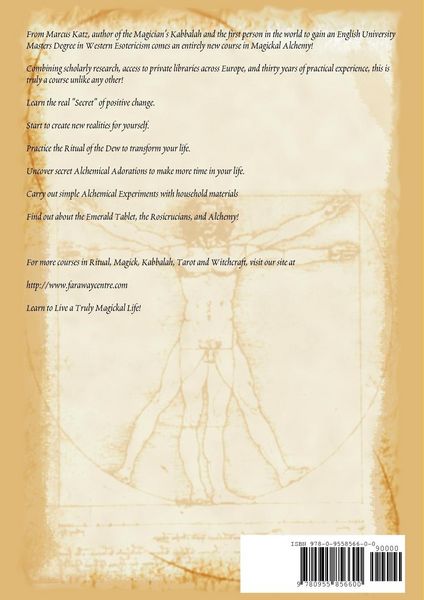 From Marcus Katz, author of the Magician's Kabbalah and the first person in the world to gain an English University
Masters Degree in Western Esotericism comes an entirely new course in Magickal Alchemy!
Combining scholarly research, access to private libraries across Europe, and thirty years of practical experience, this is
truly a course unlike any other!
Learn the real "Secret" of positive change.
Start to create new realities for yourself.
Practice the Ritual of the Dew to transform your life.
Uncover secret Alchemical Adorations to make more time in your life.
Carry out simple Alchemical Experiments with household materials
Find out about the Emerald Tablet, the Rosicrucians, and Alchemy!
For more courses in Ritual, Magick, Kabbalah, Tarot and Witchcraft, visit our site at
http://www.farawaycentre.com
Learn to Live a Truly Magickal Life!
ISBN 978-0-9558566-0-0
90000
9 780955 856600